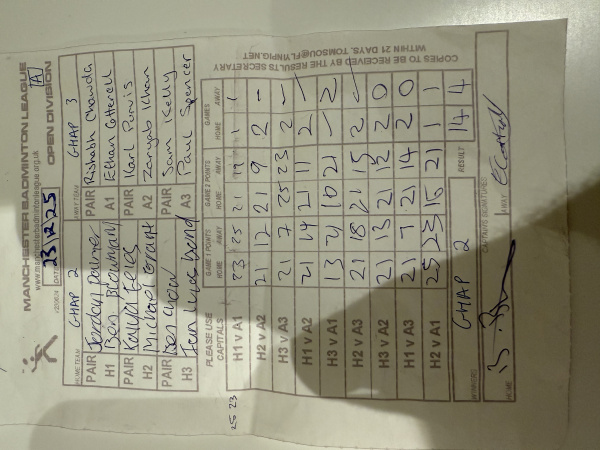 MANCHESTER BADMINTON LEAGUE
www.manchesterbadmintonleague.org.uk
DATE 23/12/25 OPEN DIVISION A
HOME TEAM GHAP 2 AWAY TEAM GHAP 3
PAIR Palmer PAIR Rishabh Chawda
H1 Ben A1 Ethan Cotterell
PAIR PAIR Karl Purvis
H2 Michael Grant A2 Zaryab Khan
PAIR Ben Chow PAIR Sam Kelly
H3 A3 Paul Spencer
PLEASE USE CAPITALS GAME 1 POINTS GAME 2 POINTS GAMES
HOME AWAY HOME AWAY HOME AWAY
H1 v A1 23 25 21 19 1 1
H2 v A2 21 12 21 9 2 -
H3 v A3 21 7 25 23 2 -
H1 v A2 21 14 21 11 2 -
H1 v A3 13 21 16 21 - 2
H2 v A3 21 18 21 15 2 -
H3 v A2 21 13 21 12 2 0
H3 v A1 21 7 21 14 2 0
H2 v A1 25 23 16 21 1 1
25 23
WINNERS GHAP 2 RESULT 14 4
CAPTAINS SIGNATURES
HOME AWAY
COPIES TO BE RECEIVED BY THE RESULTS SECRETARY
WITHIN 21 DAYS. TOMSCU@FLYINGPIG.NET